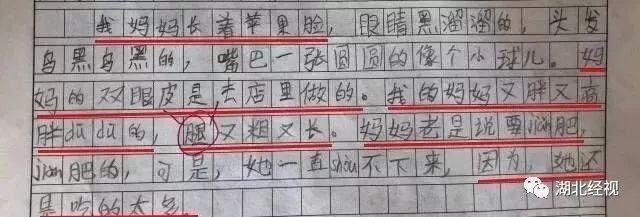 我妈妈长着苹果脸，眼睛黑溜溜的，头发
乌黑乌黑的，嘴巴一张圆圆的像个小球儿。妈
妈的双眼皮是去店里做的。我的妈妈又胖又高
胖dūdū的，腿又粗又长。妈妈老是说要jiǎn肥，
jiǎn肥的，可是，她一直shòu不下来，因为，她还
是吃的太多
湖北经视